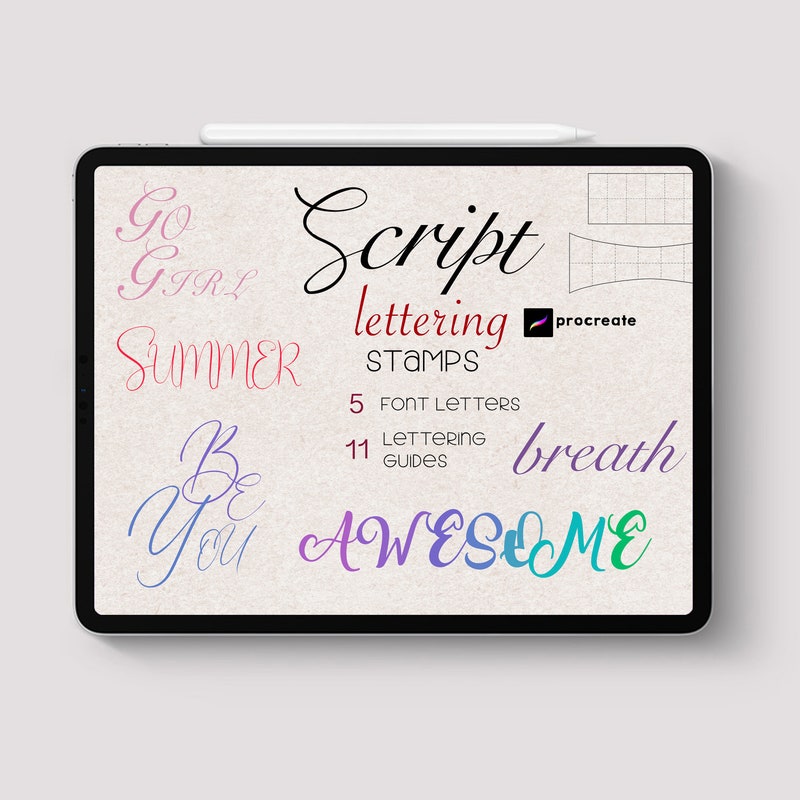 Go
Girl
Script
lettering
procreate
stamps
Summer
5 Font Letters
11 Lettering
Guides
breath
Be
You
AWESOME